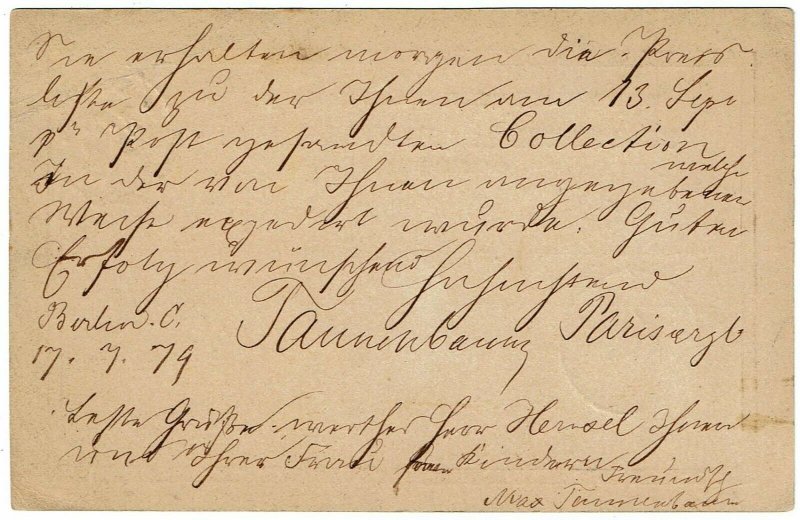 Sie erhalten morgen die Preis
liste zu der Ihnen am 13. Sept
pr Post gesandten Collection
welche
In der von Ihnen angegebenen
Weise expedirt wurde. Guten
Erfolg wünschend Hochachtend
Berlin. C. Tannenbaum Pariser &
17. 9. 79
Beste Grüße werther Herr Hensel Ihnen
und Ihrer Frau Kindern
Freundschftl
Max Tannenbaum